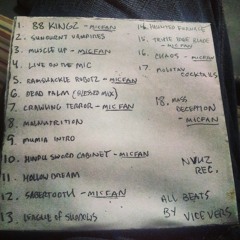 1. 88 KINGZ - MICFAN
2. SUNBURNT VAMPIRES
3. MUSCLE UP - MICFAN
4. LIVE ON THE MIC
5. RAMSHACKLE ROBOTZ - MICFAN
6. DEAD PALM (BLESSED MIX)
7. CRAWLING TERROR - MICFAN
8. MALNUTRITION
9. MUMIA INTRO
10. TEMPLE SWORD CABINET - MICFAN
11. HOLLOW DREAM
12. SABERTOOTH - MICFAN
13. LEAGUE OF SHADOWS
14. HAUNTED FURNACE
15. TRIPLE EDGE BLADE
- MICFAN
16. CHAOS - MICFAN
17. MOLOTOV
COCKTAILS
18. MASS
DECEPTION
- MICFAN
NVUZ
REC.
ALL BEATS
BY VICE VERSA